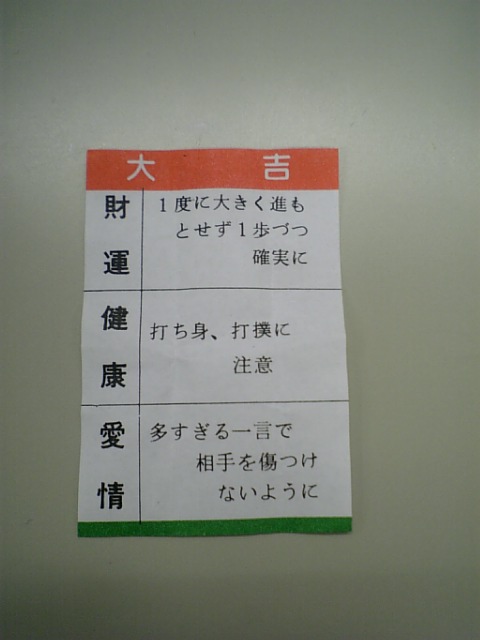 大吉
財運
1度に大きく進も
とせず1歩づつ
確実に
健康
打ち身、打撲に
注意
愛情
多すぎる一言で
相手を傷つけ
ないように